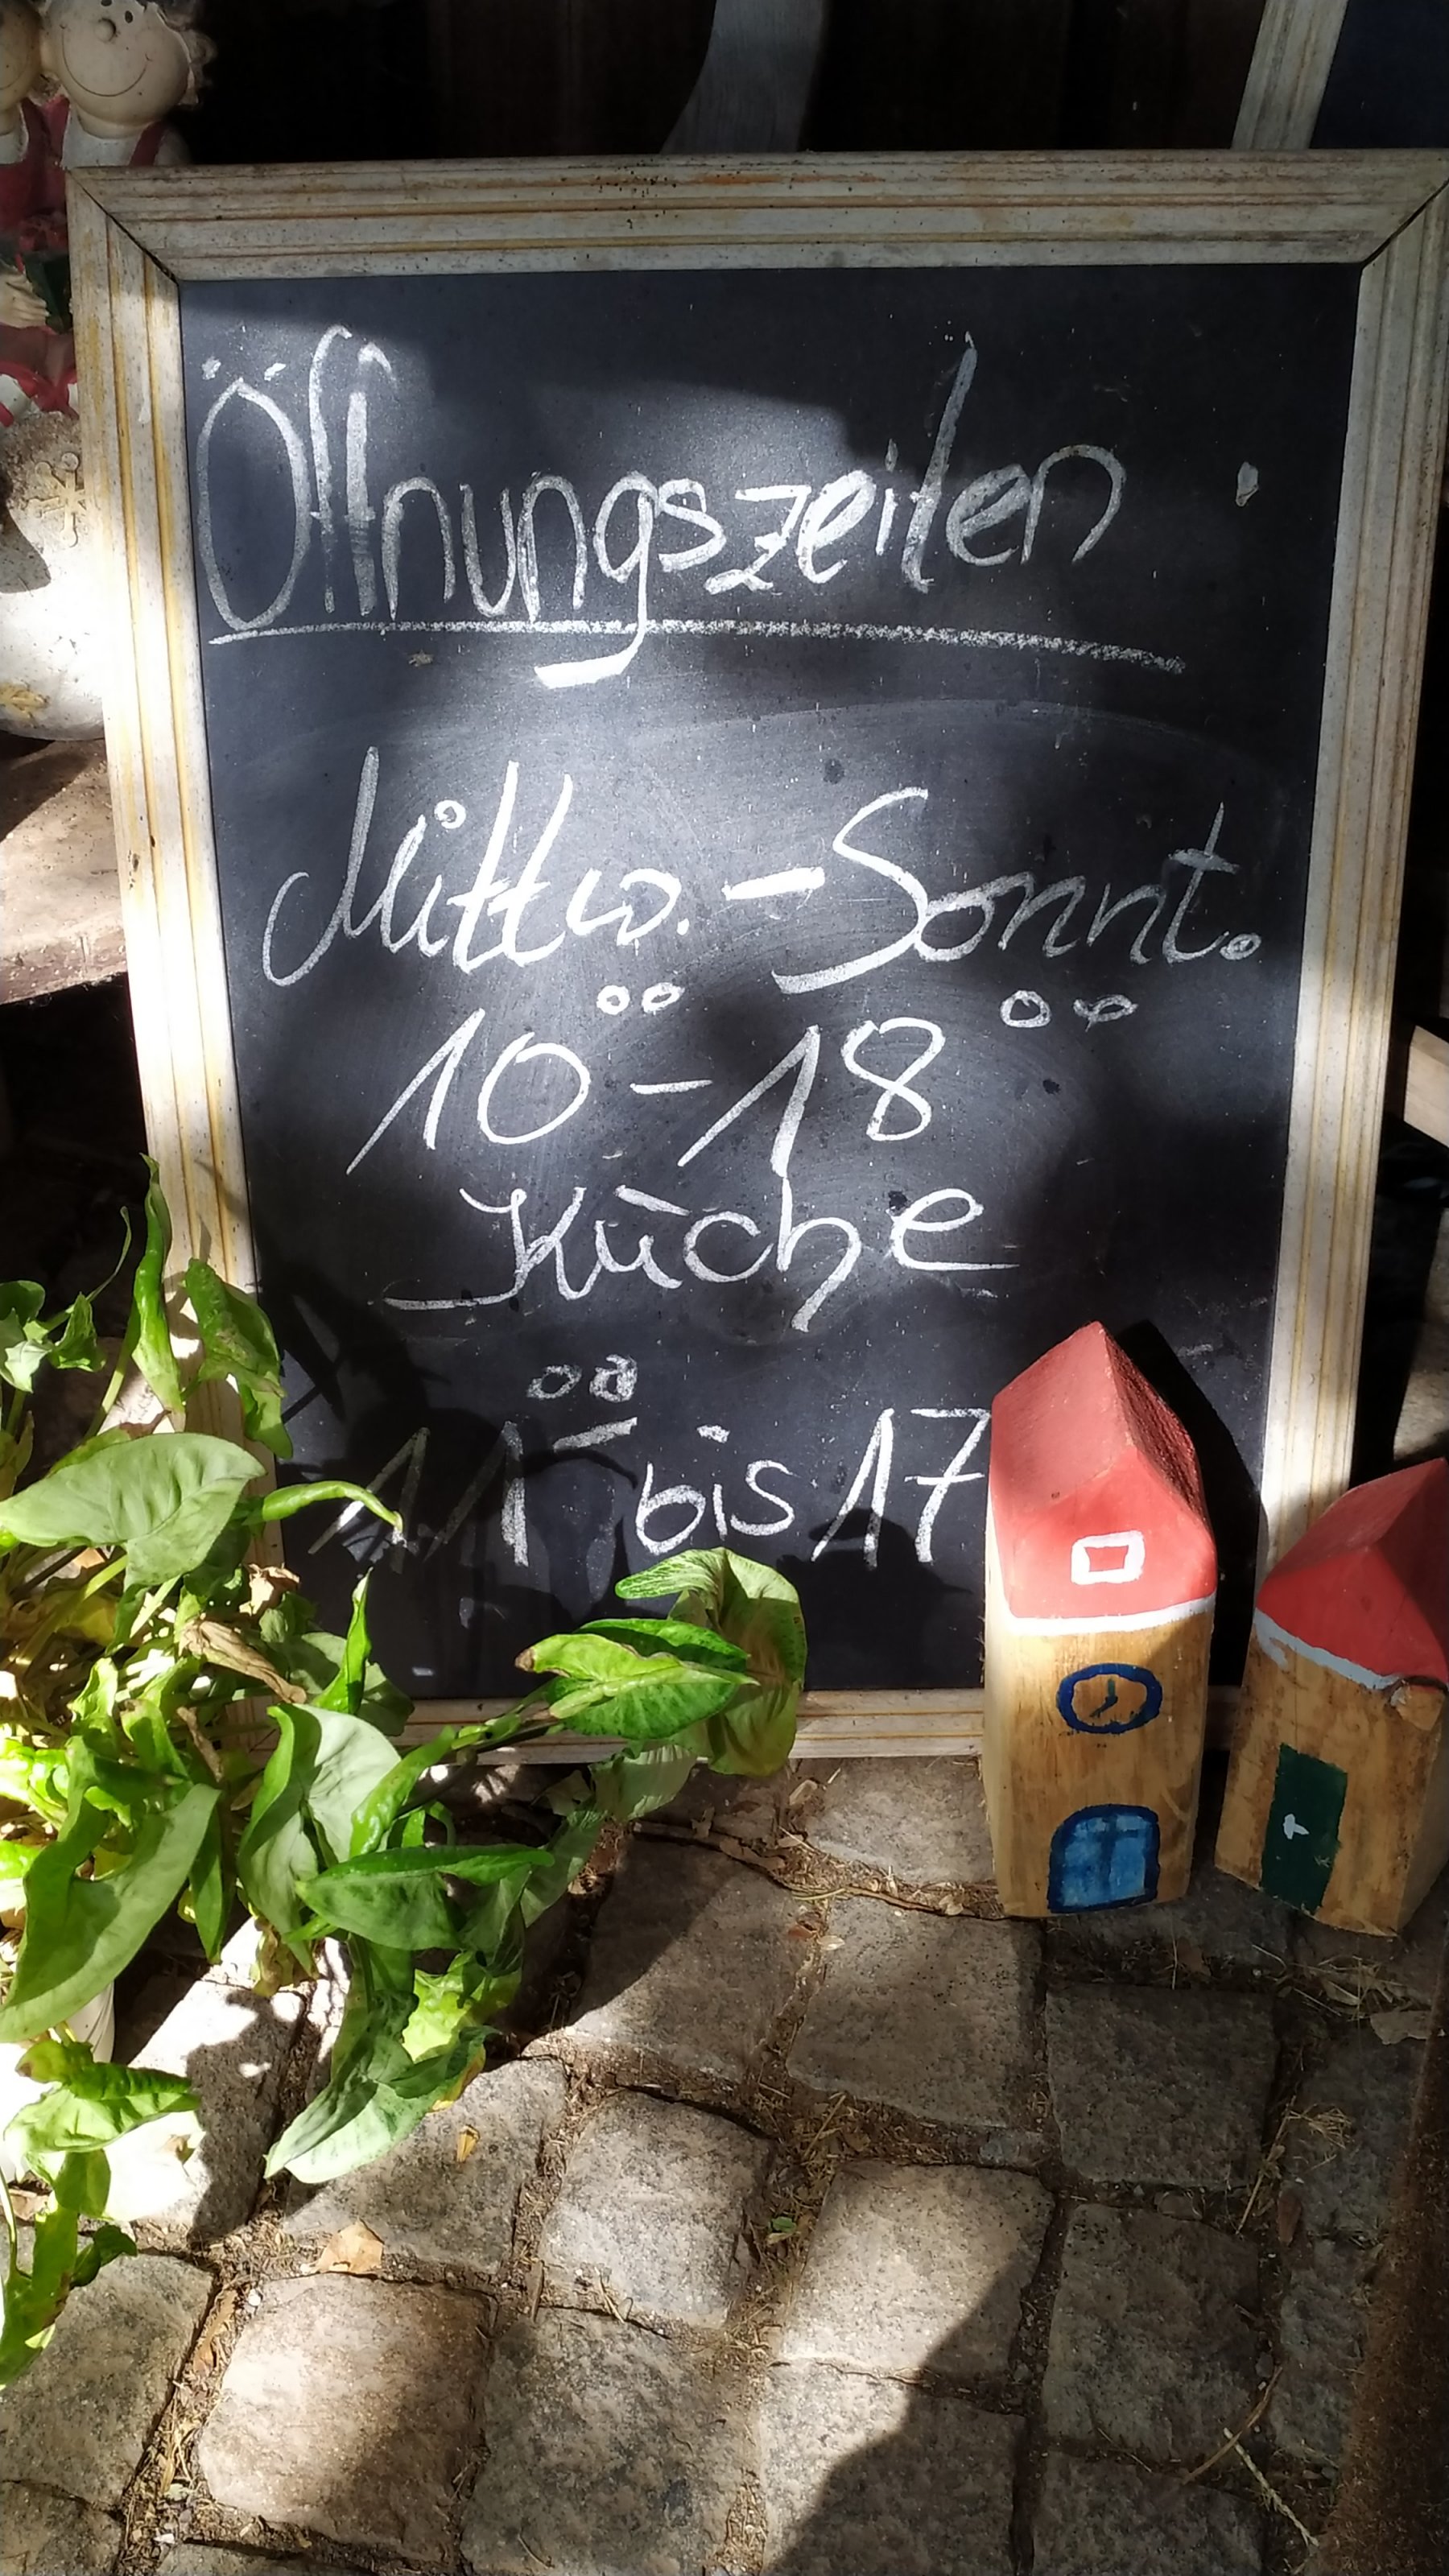 Öffnungszeiten :
Mittw. - Sonnt.
10⁰⁰ - 18⁰⁰
Küche
11⁰⁰ bis 17